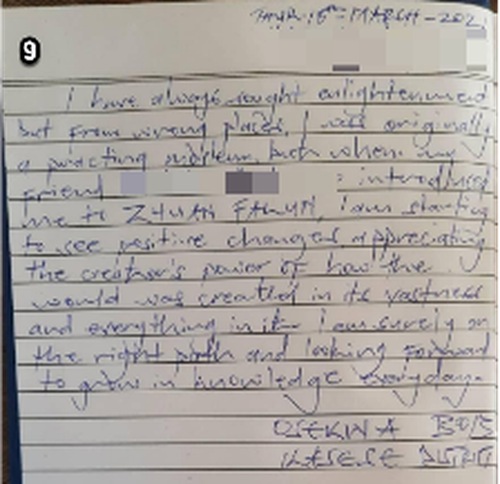 9
THUR: 15th - MARCH - 202
I have always sought enlightenment
but from wrong places. I was originally
a practing moslem, but when my
friend : introduced
me to ZHUAN FALUN, I am starting
to see positive changes appreciating
the creator's power of how the
would was created in its vastness
and everything in it. I am surely on
the right path and looking forward
to grow in knowledge everyday.
KASESE